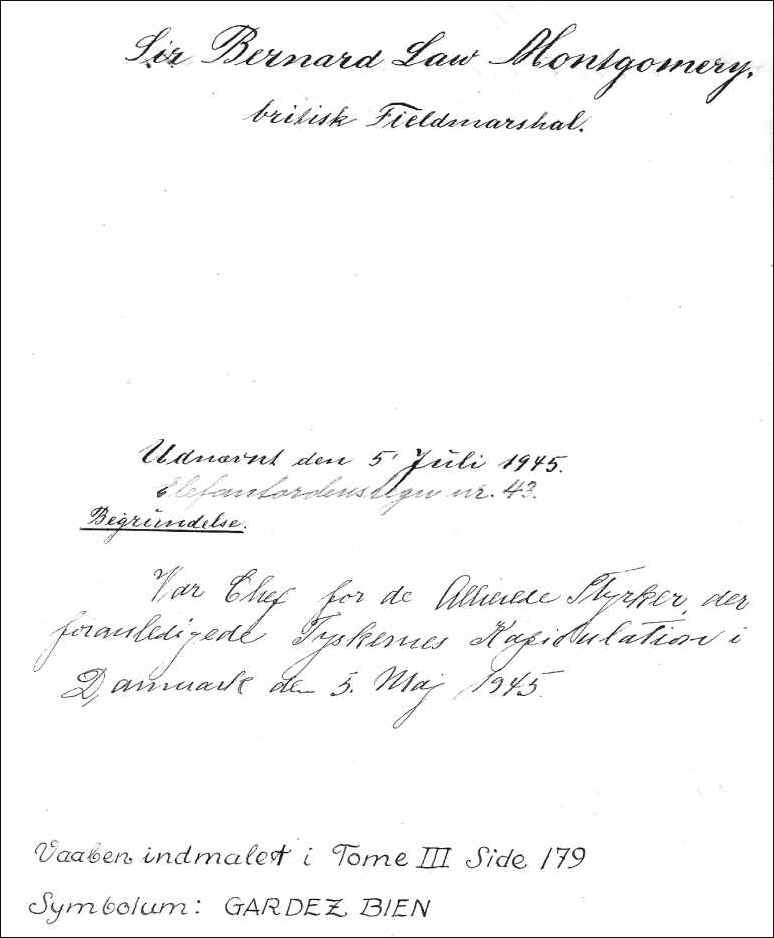 Sir Bernard Law Montgomery.
britisk Fieldmarshal.
Udnævnt den 5' Juli 1945.
Elefantordenstegn nr. 43.
Begründelse.
Var Chef for de Allierede Styrker, der
foranledigede Tyskernes Kapidulation i
Danmark den 5. Maj 1945.
Vaaben indmalet i Tome III Side 179
Symbolum: GARDEZ BIEN